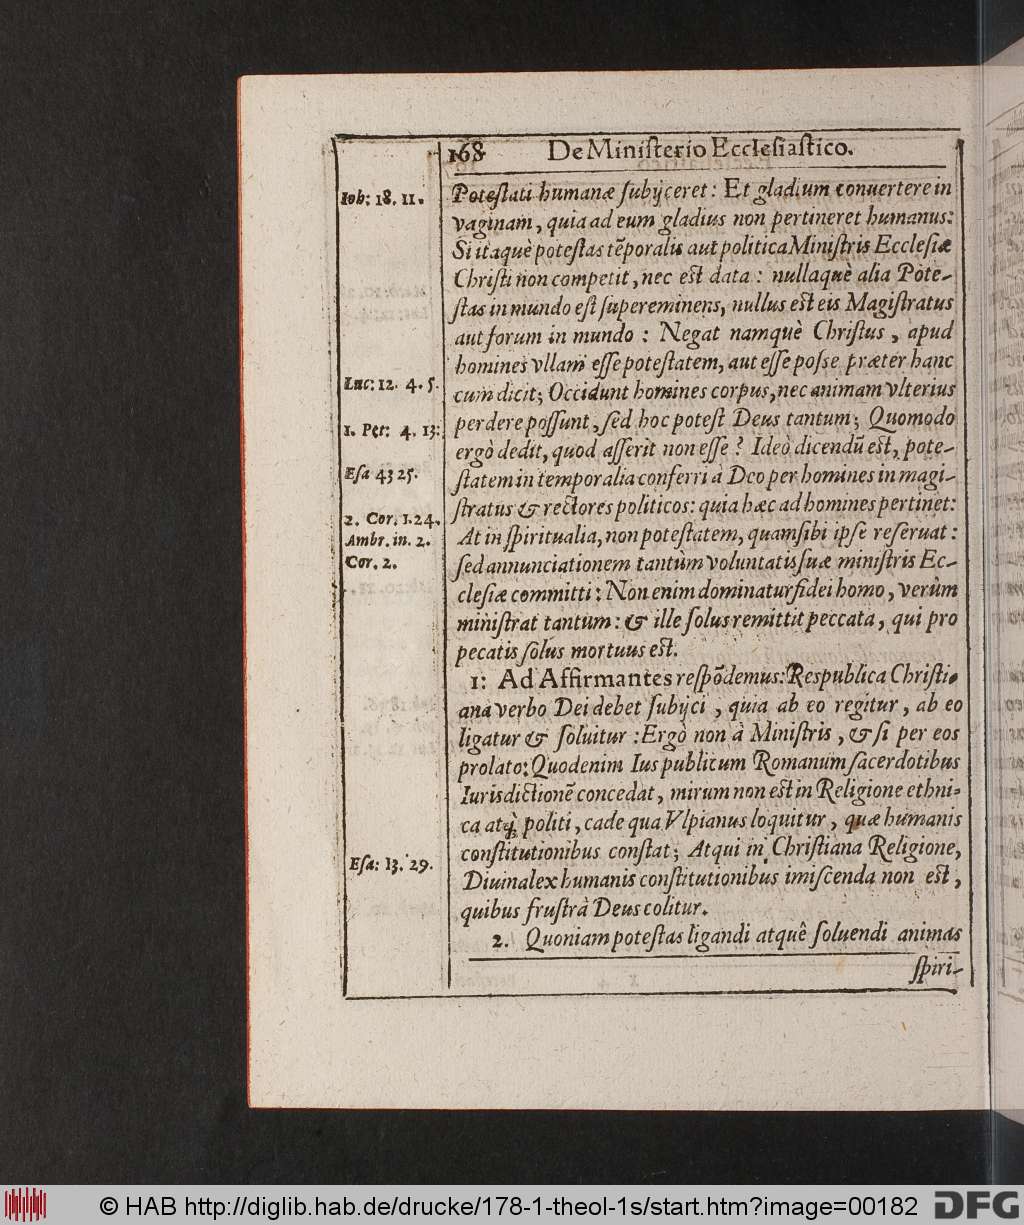 168 De Miniſterio Eccleſiaſtico.
Ioh: 18. 11. Poteſtati humanæ ſubijceret: Et gladium conuertere in
vaginam, quia ad eum gladius non pertineret humanus:
Si itaquè poteſtas tẽporalis aut politica Miniſtris Eccleſiæ
Chriſti non competit, nec eſt data: nullaquè alia Pote-
ſtas in mundo eſt ſupereminens, nullus eſt eis Magiſtratus
aut forum in mundo: Negat namquè Chriſtus, apud
homines vllam eſſe poteſtatem, aut eſſe poſse præter hanc
Luc: 12. 4. 5. cum dicit; Occidunt homines corpus, nec animam vlterius
perdere poſſunt, ſed hoc poteſt Deus tantum; Quomodo
1. Pet: 4. 13: ergò dedit, quod aſſerit non eſſe? Ideò dicendũ eſt, pote-
Eſa 43 25. ſtatem in temporalia conferri à Deo per homines in magi-
ſtratus & rectores politicos: quia hæc ad homines pertinet:
2. Cor. 1.24. At in ſpiritualia, non poteſtatem, quam ſibi ipſe reſeruat:
Ambr. in. 2. ſed annunciationem tantùm voluntatis ſuæ miniſtris Ec-
Cor. 2. cleſiæ committi: Non enim dominatur fidei homo, verùm
miniſtrat tantum: & ille ſolus remittit peccata, qui pro
pecatis ſolus mortuus eſt.
1: Ad Affirmantes reſpõdemus: Reſpublica Chriſti-
ana verbo Dei debet ſubijci, quia ab eo regitur, ab eo
ligatur & ſoluitur: Ergò non à Miniſtris, & ſi per eos
prolato: Quod enim Ius publicum Romanum ſacerdotibus
Iurisdictionẽ concedat, mirum non eſt in Religione ethni-
ca atq́; politi, ca de qua Vlpianus loquitur, quæ humanis
Eſa: 13. 29. conſtitutionibus conſtat; Atqui in Chriſtiana Religione,
Diuina lex humanis conſtitutionibus imiſcenda non eſt,
quibus fruſtrà Deus colitur.
2. Quoniam poteſtas ligandi atquê ſoluendi animas
ſpiri-
© HAB http://diglib.hab.de/drucke/178-1-theol-1s/start.htm?image=00182 DFG